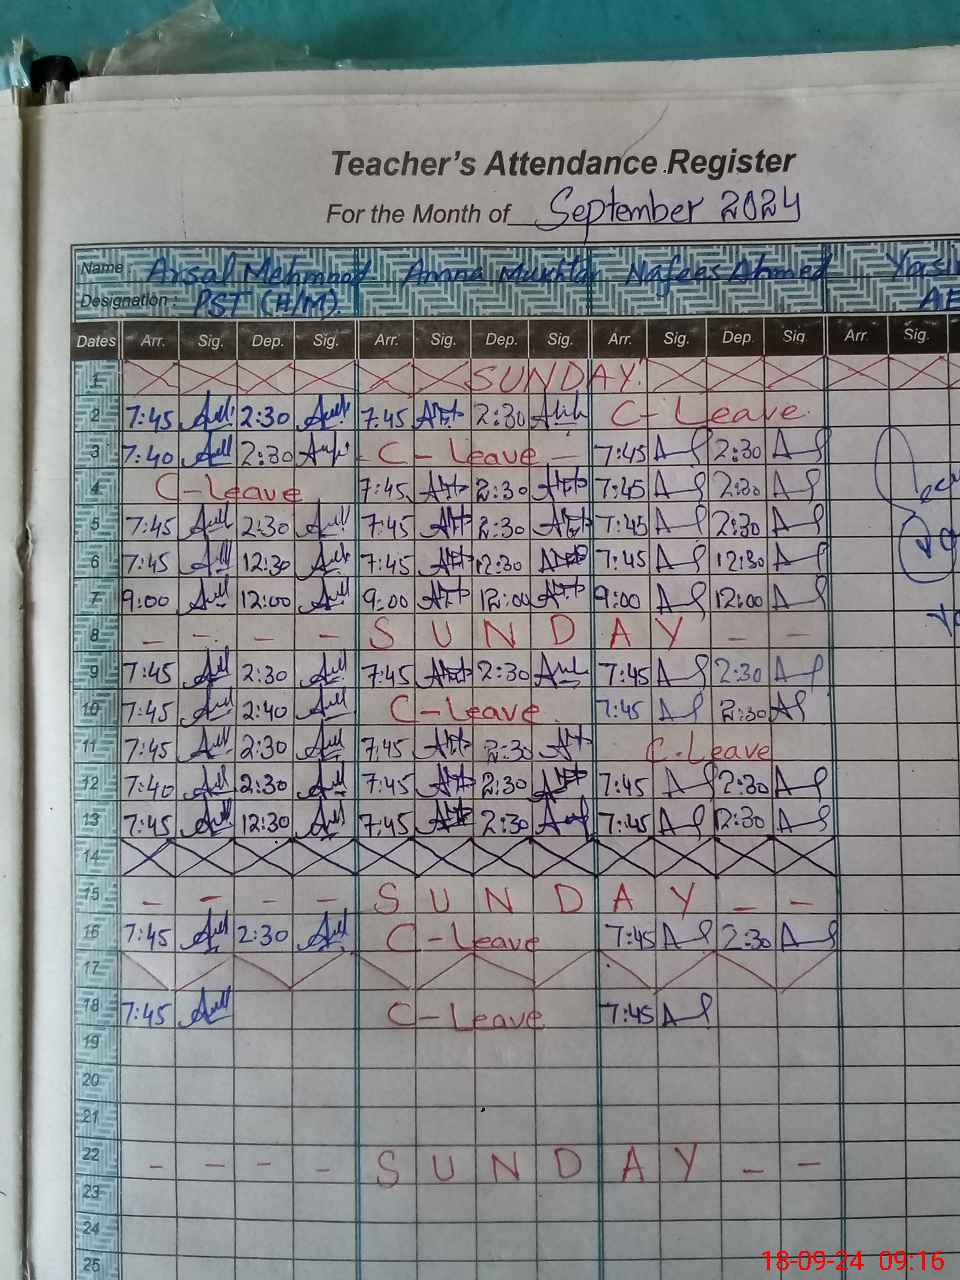 Teacher's Attendance Register
For the Month of September 2024
Name: Arsal Mehmood Amna Mukhtar Nafees Ahmed Yasir
Designation: PST (H/M).
Dates Arr. Sig. Dep. Sig. Arr. Sig. Dep. Sig. Arr. Sig. Dep. Sig. Arr. Sig.
1 SUNDAY
2 7:45 2:30 7:45 2:30 C-Leave
3 7:40 2:30 - C-Leave - 7:45 2:30
4 C-Leave 7:45 2:30 7:45 2:30
5 7:45 2:30 7:45 2:30 7:45 2:30
6 7:45 12:30 7:45 12:30 7:45 12:30
7 9:00 12:00 9:00 12:00 9:00 12:00
8 - - - - S U N D A Y - -
9 7:45 2:30 7:45 2:30 7:45 2:30
10 7:45 2:40 C-Leave 7:45 2:30
11 7:45 2:30 7:45 2:30 C-Leave
12 7:40 2:30 7:45 2:30 7:45 2:30
13 7:45 12:30 7:45 2:30 7:45 12:30
14
15 - - - - S U N D A Y - -
16 7:45 2:30 C-Leave 7:45 2:30
17
18 7:45 C-Leave 7:45
19
20
21
22 - - - - S U N D A Y - -
23
24
25
18-09-24 09:16